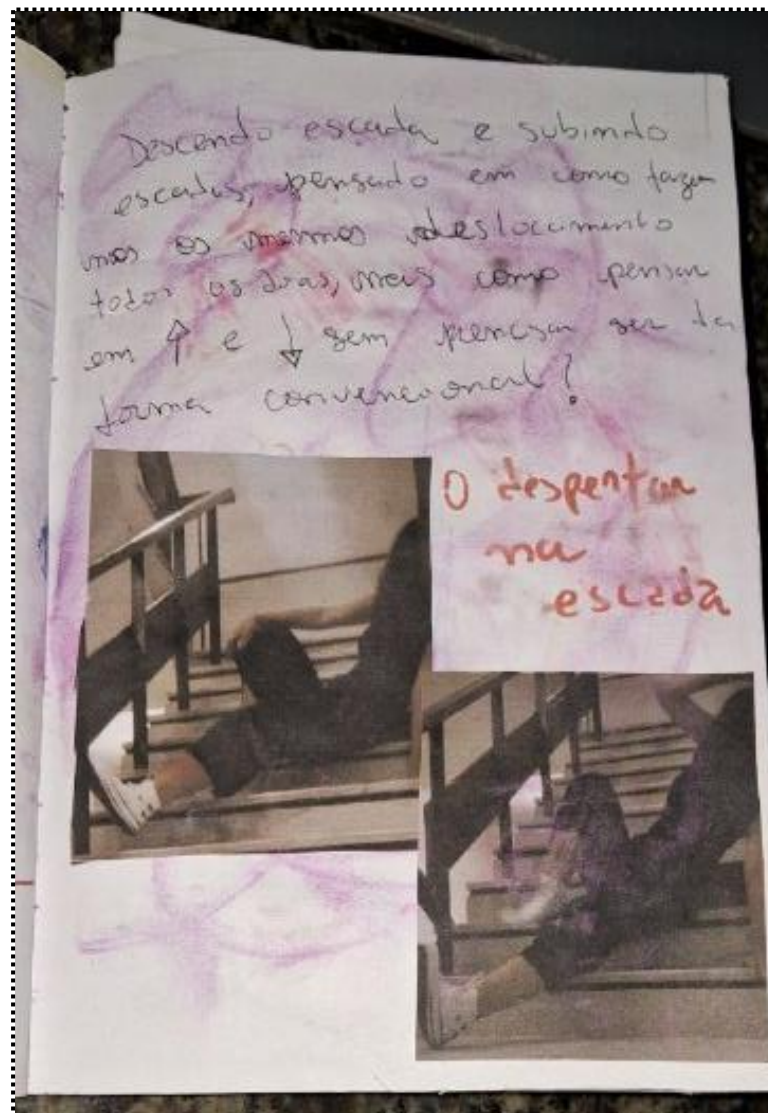 Descendo escada e subindo
escadas, pensado em como faze
mos os mesmos deslocamento
todos os dias, mais como pensar
em ↑ e ↓ sem precisar ser da
forma convencional?
O despertar
na
escada